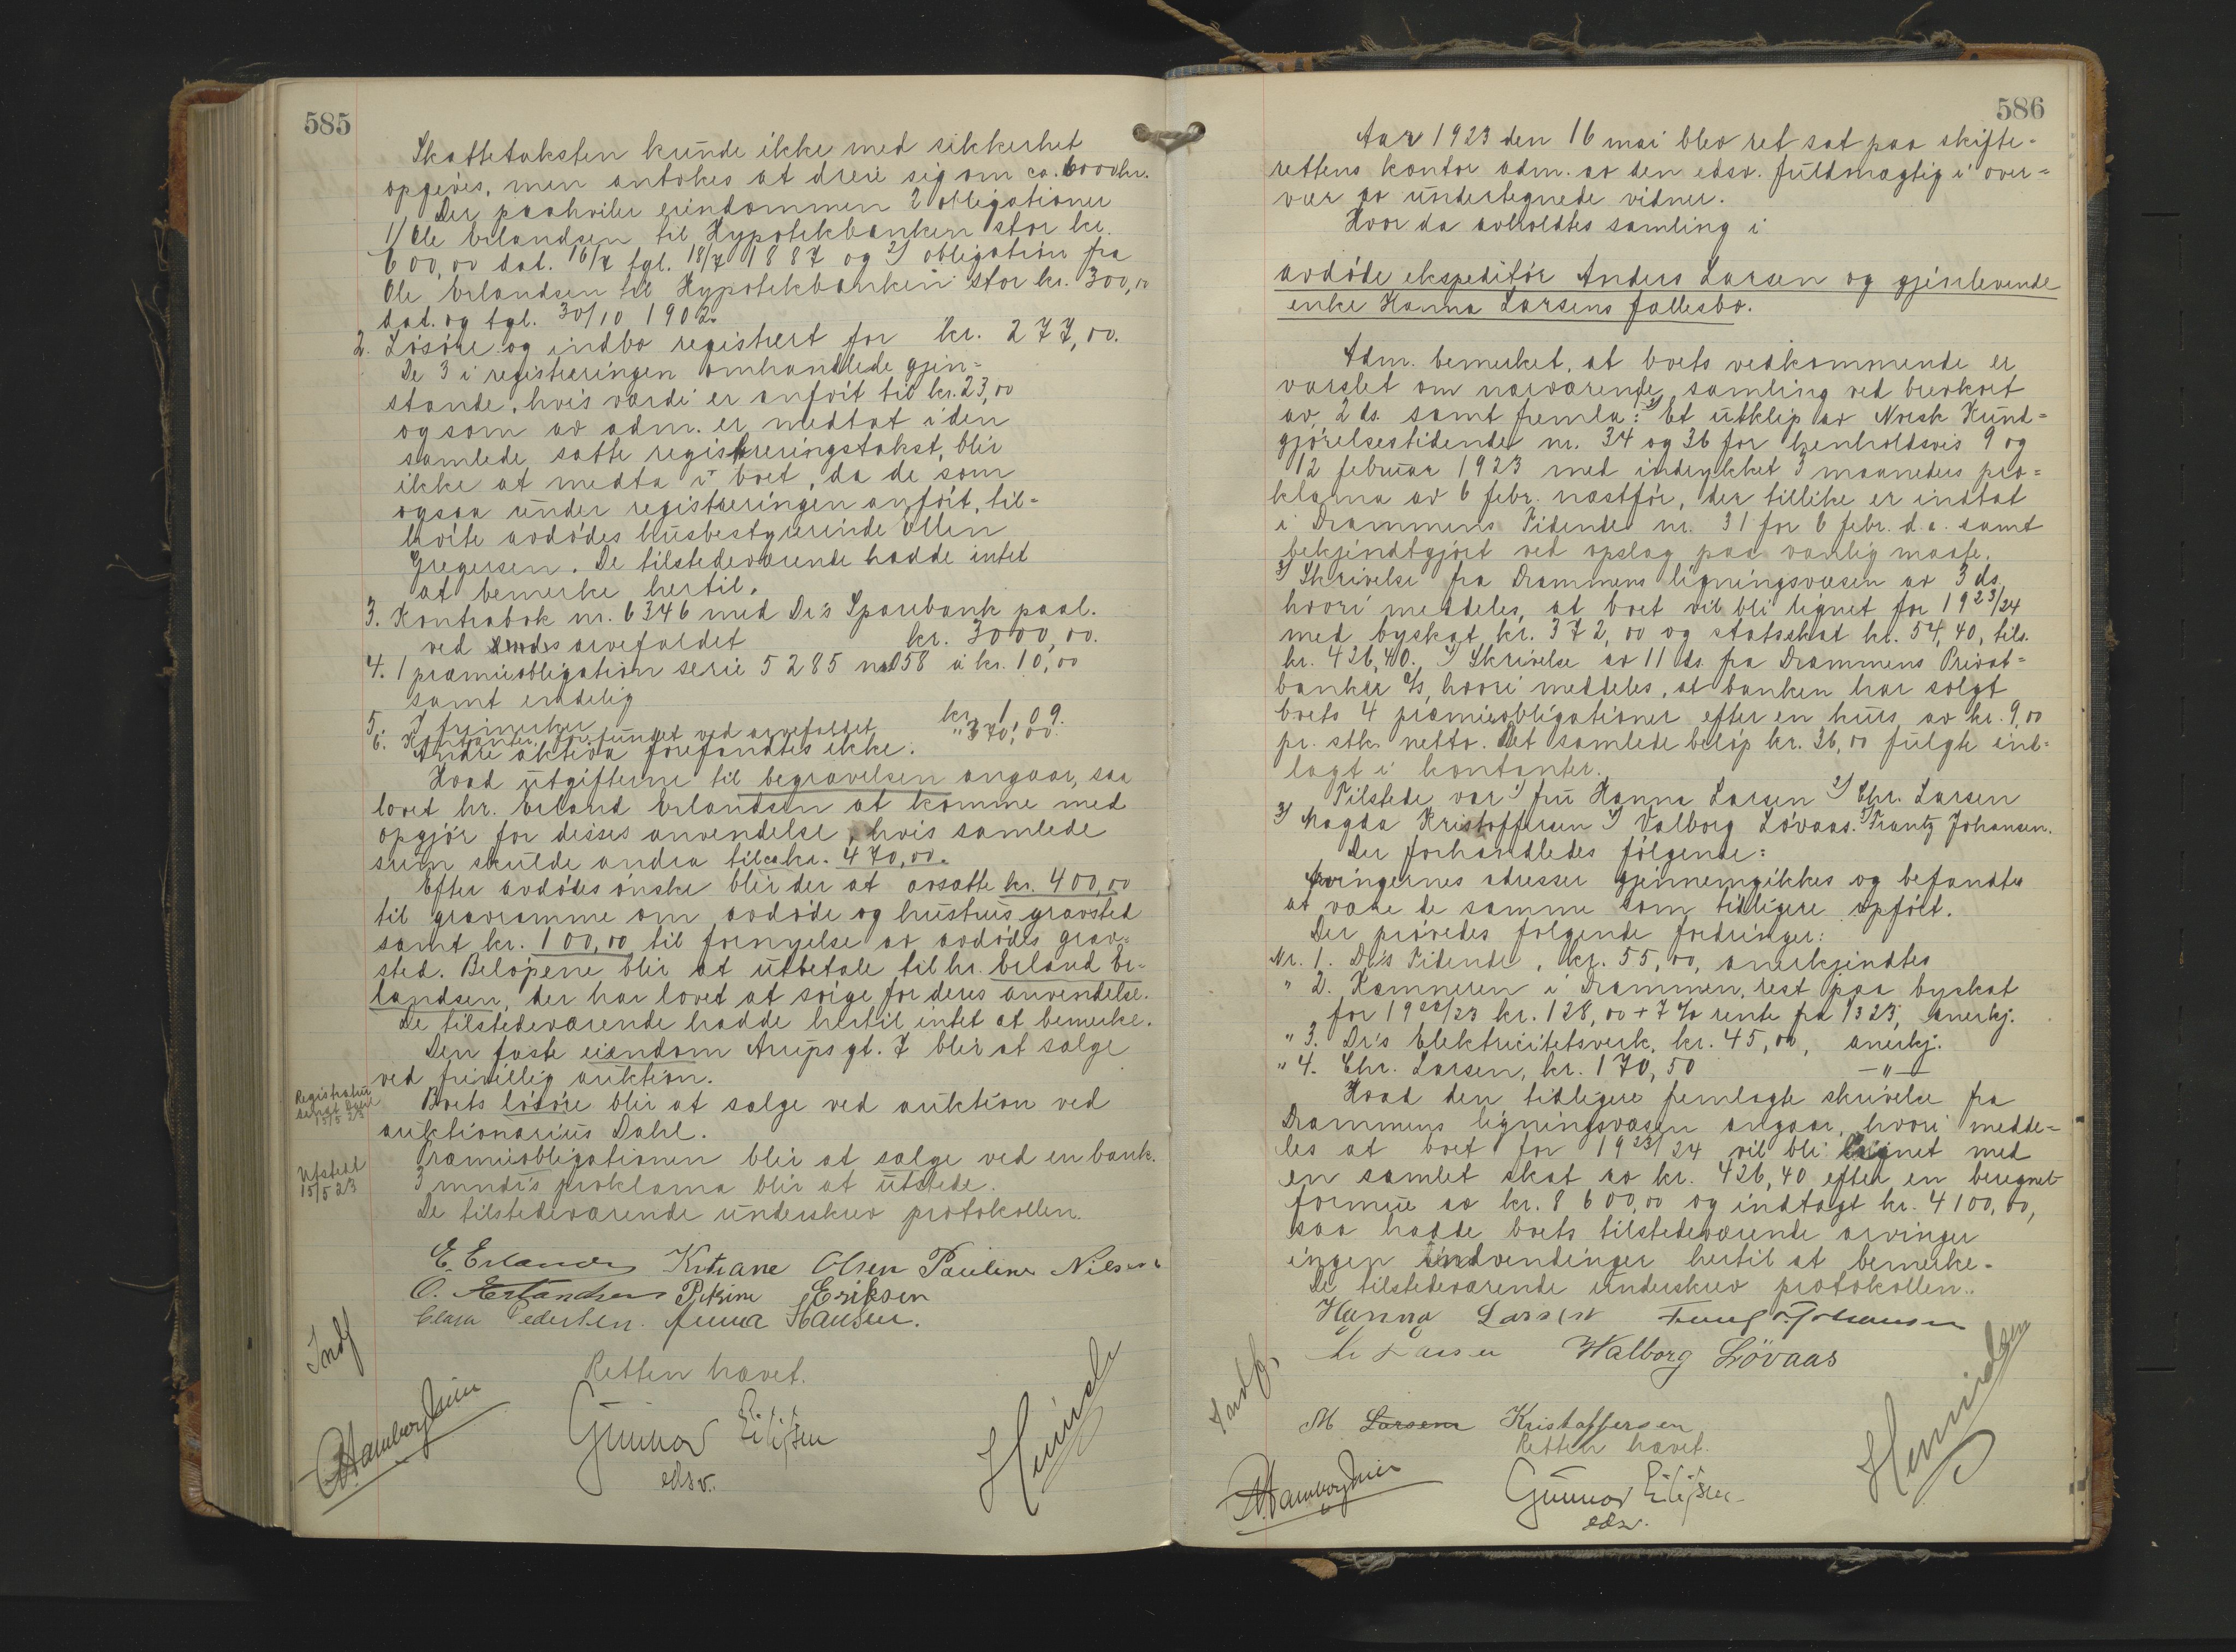 585
Skattetaksten kunde ikke med sikkerhet
opgives, men antokes at dreie sig om ca. 6000 kr.
Der paahviler eiendommen 2 obligationer
1/ Ole Erlandsen til Hypotekbanken stor kr.
600,00 dat. 16/7 tgl. 18/7 1887 og 2) obligation fra
Ole Erlandsen til Hypotekbanken stor kr. 300,00
dat. og tgl. 30/10 1902.
2. Løsøre og indbo registrert for kr. 277,00.
De 3 i registreringen omhandlede gjen=
stande, hvis værdi er anført til kr. 23,00
og som av adm. er medtat i den
samlede satte registreringstakst, blir
ikke at medta i boet, da de som
ogsaa under registreringen anført, til=
hørte avdødes husbestyrerinde Ellen
Gregersen. De tilstedeværende hadde intet
at bemerke hertil.
3. Kontrabok nr. 6346 med Dr's Sparebank paal.
ved arvefaldet kr. 3000,00.
4. 1 præmieobligation serie 5285 nr. 058 à kr. 10,00
samt endelig
5. I frimerker kr. 1,09.
6. Kontanter forefundet ved arvefaldet " 370,00.
Andre aktiva forefandtes ikke.
Hvad utgifterne til begravelsen angaar, saa
lovet hr. Erland Erlandsen at komme med
opgjør for disses anvendelse, hvis samlede
sum skulde andra til ca kr. 470,00.
Efter avdødes ønske blir der at avsætte kr. 400,00
til gravramme om avdøde og hustrus gravsted
samt kr. 100,00 til fornyelse av avdødes grav=
sted. Beløpene blir at utbetale til hr. Erland Er=
landsen, der har lovet at sørge for deres anvendelse.
De tilstedeværende hadde hertil intet at bemerke.
Den faste eiendom Arupsgt. 7 blir at sælge
ved frivillig auktion.
Registratur
sendt Dahl
15/5 23
Boets løsøre blir at sælge ved auktion ved
auktionarius Dahl.
Præmieobligationen blir at sælge ved en bank.
Utstedt
15/5 23
3 mndr's proklama blir at utstede.
De tilstedeværende underskrev protokollen.
E. Erlandsen Kitiane Olsen Pauline Nilsen
O. Erlandsen Petrine Eriksen
Clara Pedersen. Anna Hansen.
Indf
Retten hævet.
Gunnar Eilifsen
edsv.
586
Aar 1923 den 16 mai blev ret sat paa skifte=
rettens kontor adm. av den edsv. fuldmægtig i over=
vær av undertegnede vidner.
Hvor da avholdtes samling i
avdøde ekspeditør Anders Larsen og gjenlevende
enke Hanna Larsens fællesbo.
Adm. bemerket, at boets vedkommende er
varslet om nærværende samling ved brevkort
av 2 ds. samt fremla: 1) Et utklip av Norsk Kund=
gjørelsestidende nr. 34 og 36 for henholdsvis 9 og
12 februar 1923 med indrykket 3 maaneders pro=
klama av 6 febr. næstfør, der tillike er indtat
i Drammens Tidende nr. 31 for 6 febr. d.a. samt
bekjendtgjort ved opslag paa vanlig maate.
3) Skrivelse fra Drammens ligningsvæsen av 3 ds.
hvori meddeles, at boet vil bli lignet for 1923/24
med byskat kr. 372,00 og statsskat kr. 54,40, tils.
kr. 426,40. Skrivelse av 11 ds. fra Drammens Privat=
banker a/s, hvori meddeles, at banken har solgt
boets 4 præmieobligationer efter en kurs av kr. 9,00
pr. stk. netto. Det samlede beløp kr. 36,00 fulgte ind=
lagt i kontanter.
Tilstede var 1) fru Hanna Larsen 2) Chr. Larsen
3) Magda Kristoffersen 4) Valborg Løvaas. 5) Frantz Johansen.
Der forhandledes følgende:
Arvingernes adresser gjennemgikkes og befandtes
at være de samme som tidligere opført.
Der prøvedes følgende fordringer:
Nr. 1. Dr's Tidende, kr. 55,00, anerkjendtes
" 2. Kæmneren i Drammen, rest paa byskat
for 1922/23 kr. 128,00 + 7 % rente fra 1/3 23, anerkj.
" 3. Dr's Elektricitetsverk, kr. 45,00, anerkj.
" 4. Chr. Larsen, kr. 170,50 —"—
Hvad den tidligere fremlagte skrivelse fra
Drammens ligningsvæsen angaar, hvori medde=
les at boet for 1923/24 vil bli lignet med
en samlet skat av kr. 426,40 efter en beregnet
formue av kr. 8600,00 og indtægt kr. 4100,00,
saa hadde boets tilstedeværende arvinger
ingen indvendinger hertil at bemerke.
De tilstedeværende underskrev protokollen.
Hanna Larsen Frantz Johansen
Chr Larsen Walborg Lövaas
Indf.
M Larsen Kristoffersen
Retten hævet.
Gunnar Eilifsen
edsv.